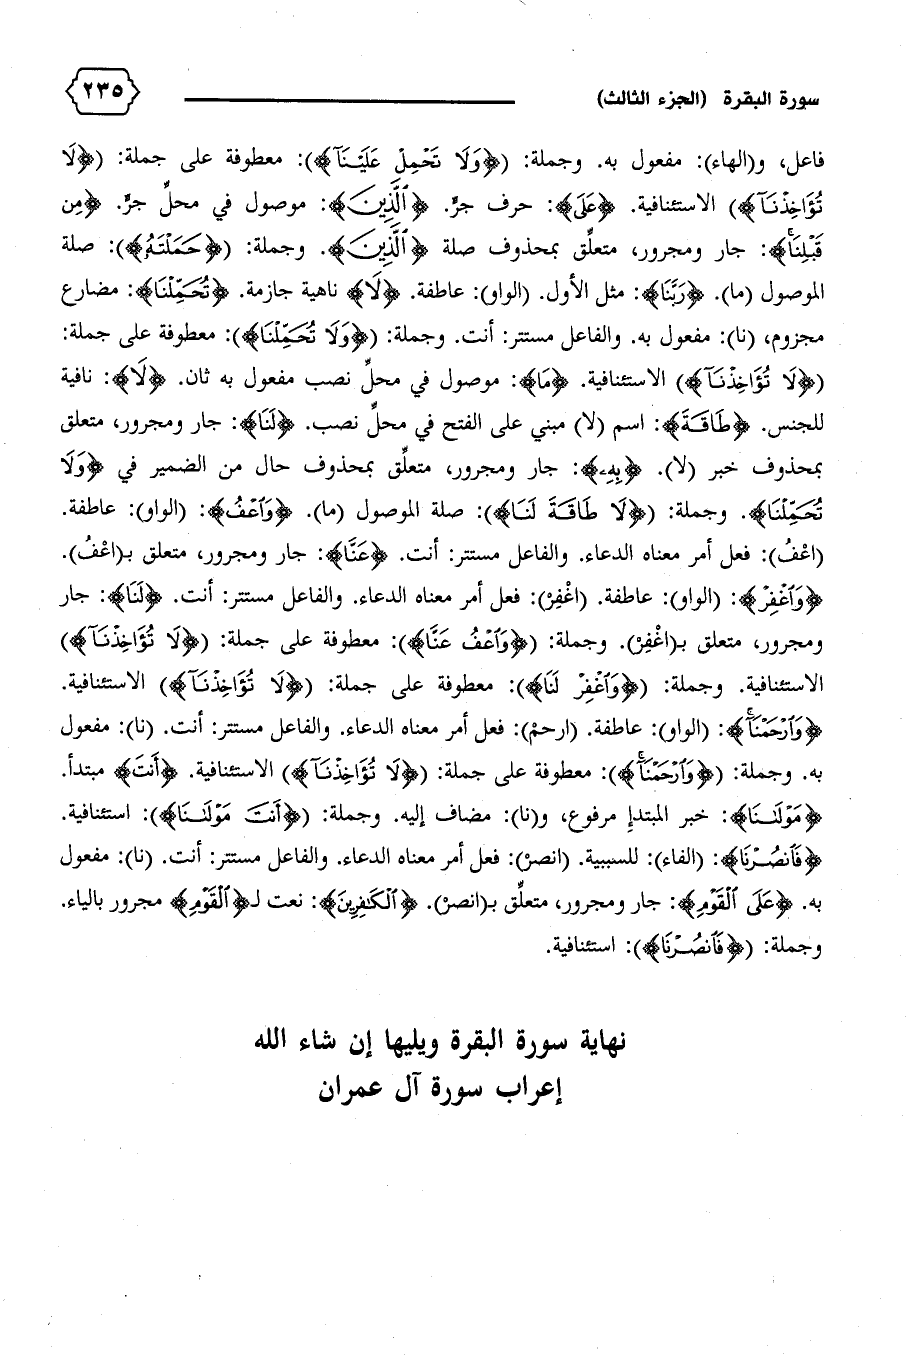 سورة البقرة (الجزء الثالث)
٢٣٥
فاعل، و(الهاء): مفعول به. وجملة: (﴿وَلَا تَحْمِلْ عَلَيْنَآ﴾): معطوفة على جملة: (﴿لَا
تُؤَاخِذْنَآ﴾) الاستئنافية. ﴿عَلَى﴾: حرف جرٍّ. ﴿ٱلَّذِينَ﴾: موصول في محلِّ جرٍّ. ﴿مِن
قَبْلِنَاۚ﴾: جار ومجرور، متعلِّق بمحذوف صلة ﴿ٱلَّذِينَ﴾. وجملة: (﴿حَمَلْتَهُۥ﴾): صلة
الموصول (ما). ﴿رَبَّنَا﴾: مثل الأول. (الواو): عاطفة. ﴿لَا﴾ ناهية جازمة. ﴿تُحَمِّلْنَا﴾: مضارع
مجزوم، (نا): مفعول به. والفاعل مستتر: أنت. وجملة: (﴿وَلَا تُحَمِّلْنَا﴾): معطوفة على جملة:
(﴿لَا تُؤَاخِذْنَآ﴾) الاستئنافية. ﴿مَا﴾: موصول في محلِّ نصب مفعول به ثان. ﴿لَا﴾: نافية
للجنس. ﴿طَاقَةَ﴾: اسم (لا) مبني على الفتح في محلِّ نصب. ﴿لَنَا﴾: جار ومجرور، متعلق
بمحذوف خبر (لا). ﴿بِهِۦ﴾: جار ومجرور، متعلِّق بمحذوف حال من الضمير في ﴿وَلَا
تُحَمِّلْنَا﴾. وجملة: (﴿لَا طَاقَةَ لَنَا﴾): صلة الموصول (ما). ﴿وَٱعْفُ﴾: (الواو): عاطفة.
(اعْفُ): فعل أمر معناه الدعاء. والفاعل مستتر: أنت. ﴿عَنَّا﴾: جار ومجرور، متعلق بـ(اعْفُ).
﴿وَٱغْفِرْ﴾: (الواو): عاطفة. (اغْفِرْ): فعل أمر معناه الدعاء. والفاعل مستتر: أنت. ﴿لَنَا﴾: جار
ومجرور، متعلق بـ(اغْفِرْ). وجملة: (﴿وَٱعْفُ عَنَّا﴾): معطوفة على جملة: (﴿لَا تُؤَاخِذْنَآ﴾)
الاستئنافية. وجملة: (﴿وَٱغْفِرْ لَنَا﴾): معطوفة على جملة: (﴿لَا تُؤَاخِذْنَآ﴾) الاستئنافية.
﴿وَٱرْحَمْنَآۚ﴾: (الواو): عاطفة. (ارحمْ): فعل أمر معناه الدعاء. والفاعل مستتر: أنت. (نا): مفعول
به. وجملة: (﴿وَٱرْحَمْنَآۚ﴾): معطوفة على جملة: (﴿لَا تُؤَاخِذْنَآ﴾) الاستئنافية. ﴿أَنتَ﴾ مبتدأ.
﴿مَوْلَىٰنَا﴾: خبر المبتدإ مرفوع، و(نا): مضاف إليه. وجملة: (﴿أَنتَ مَوْلَىٰنَا﴾): استئنافية.
﴿فَٱنصُرْنَا﴾: (الفاء): للسببية. (انصرْ): فعل أمر معناه الدعاء. والفاعل مستتر: أنت. (نا): مفعول
به. ﴿عَلَى ٱلْقَوْمِ﴾: جار ومجرور، متعلِّق بـ(انصرْ). ﴿ٱلْكَٰفِرِينَ﴾: نعت لـ﴿ٱلْقَوْمِ﴾ مجرور بالياء.
وجملة: (﴿فَٱنصُرْنَا﴾): استئنافية.
نهاية سورة البقرة ويليها إن شاء الله
إعراب سورة آل عمران